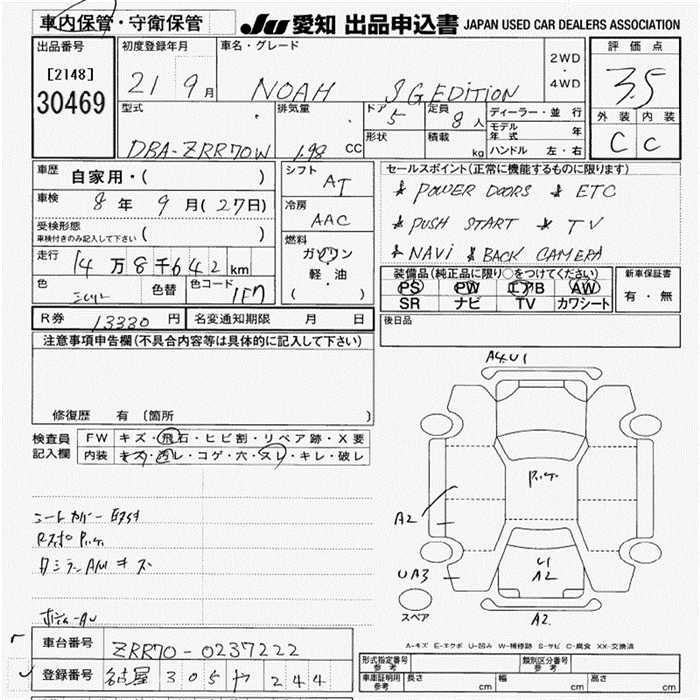 車内保管・守衛保管
JU 愛知 出品申込書 JAPAN USED CAR DEALERS ASSOCIATION
出品番号 初度登録年月 車名・グレード 評価点
[2148] 21 9月 NOAH SG EDITION 2WD・4WD 3.5
30469 型式 排気量 ドア 5 定員 8人 ディーラー・並行 外装 内装
形状 積載 kg モデル年式 年
DBA-ZRR70W 1.98 CC ハンドル 左・右 C C
車歴 自家用・( ) シフト AT セールスポイント(正常に機能するものに限ります)
車検 8年 9月(27日) 冷房 AAC * POWER DOORS * ETC
受検形態 ( ) * PUSH START * TV
車検付きのみ記入して下さい
走行 14万8千642km 燃料 ガソリン * NAVI * BACK CAMERA
軽・油
( )
色 色替 色コード 1F7
装備品(純正品に限り○をつけてください) 新車保証書
PS PW エアB AW 有・無
SR ナビ TV カワシート
R券 13330円 名変通知期限 月 日 後日品
注意事項申告欄(不具合内容等は具体的に記入して下さい)
修復歴 有〔箇所 〕
検査員記入欄 FW キズ・飛石・ヒビ割・リペア跡・X要
内装 キズ・汚レ・コゲ・穴・スレ・キレ・破レ
A4.U1
A2
UA3
U1
A2
A2
スペア
A-キズ E-エクボ U-凹み W-補修跡 S-サビ C-腐食 XX-交換済
車台番号 ZRR70-0237222
登録番号 名古屋 305 ヤ 244
形式指定番号 参考 類別区分番号 参考
車庫証明用 参考 長さ cm 幅 cm 高さ cm